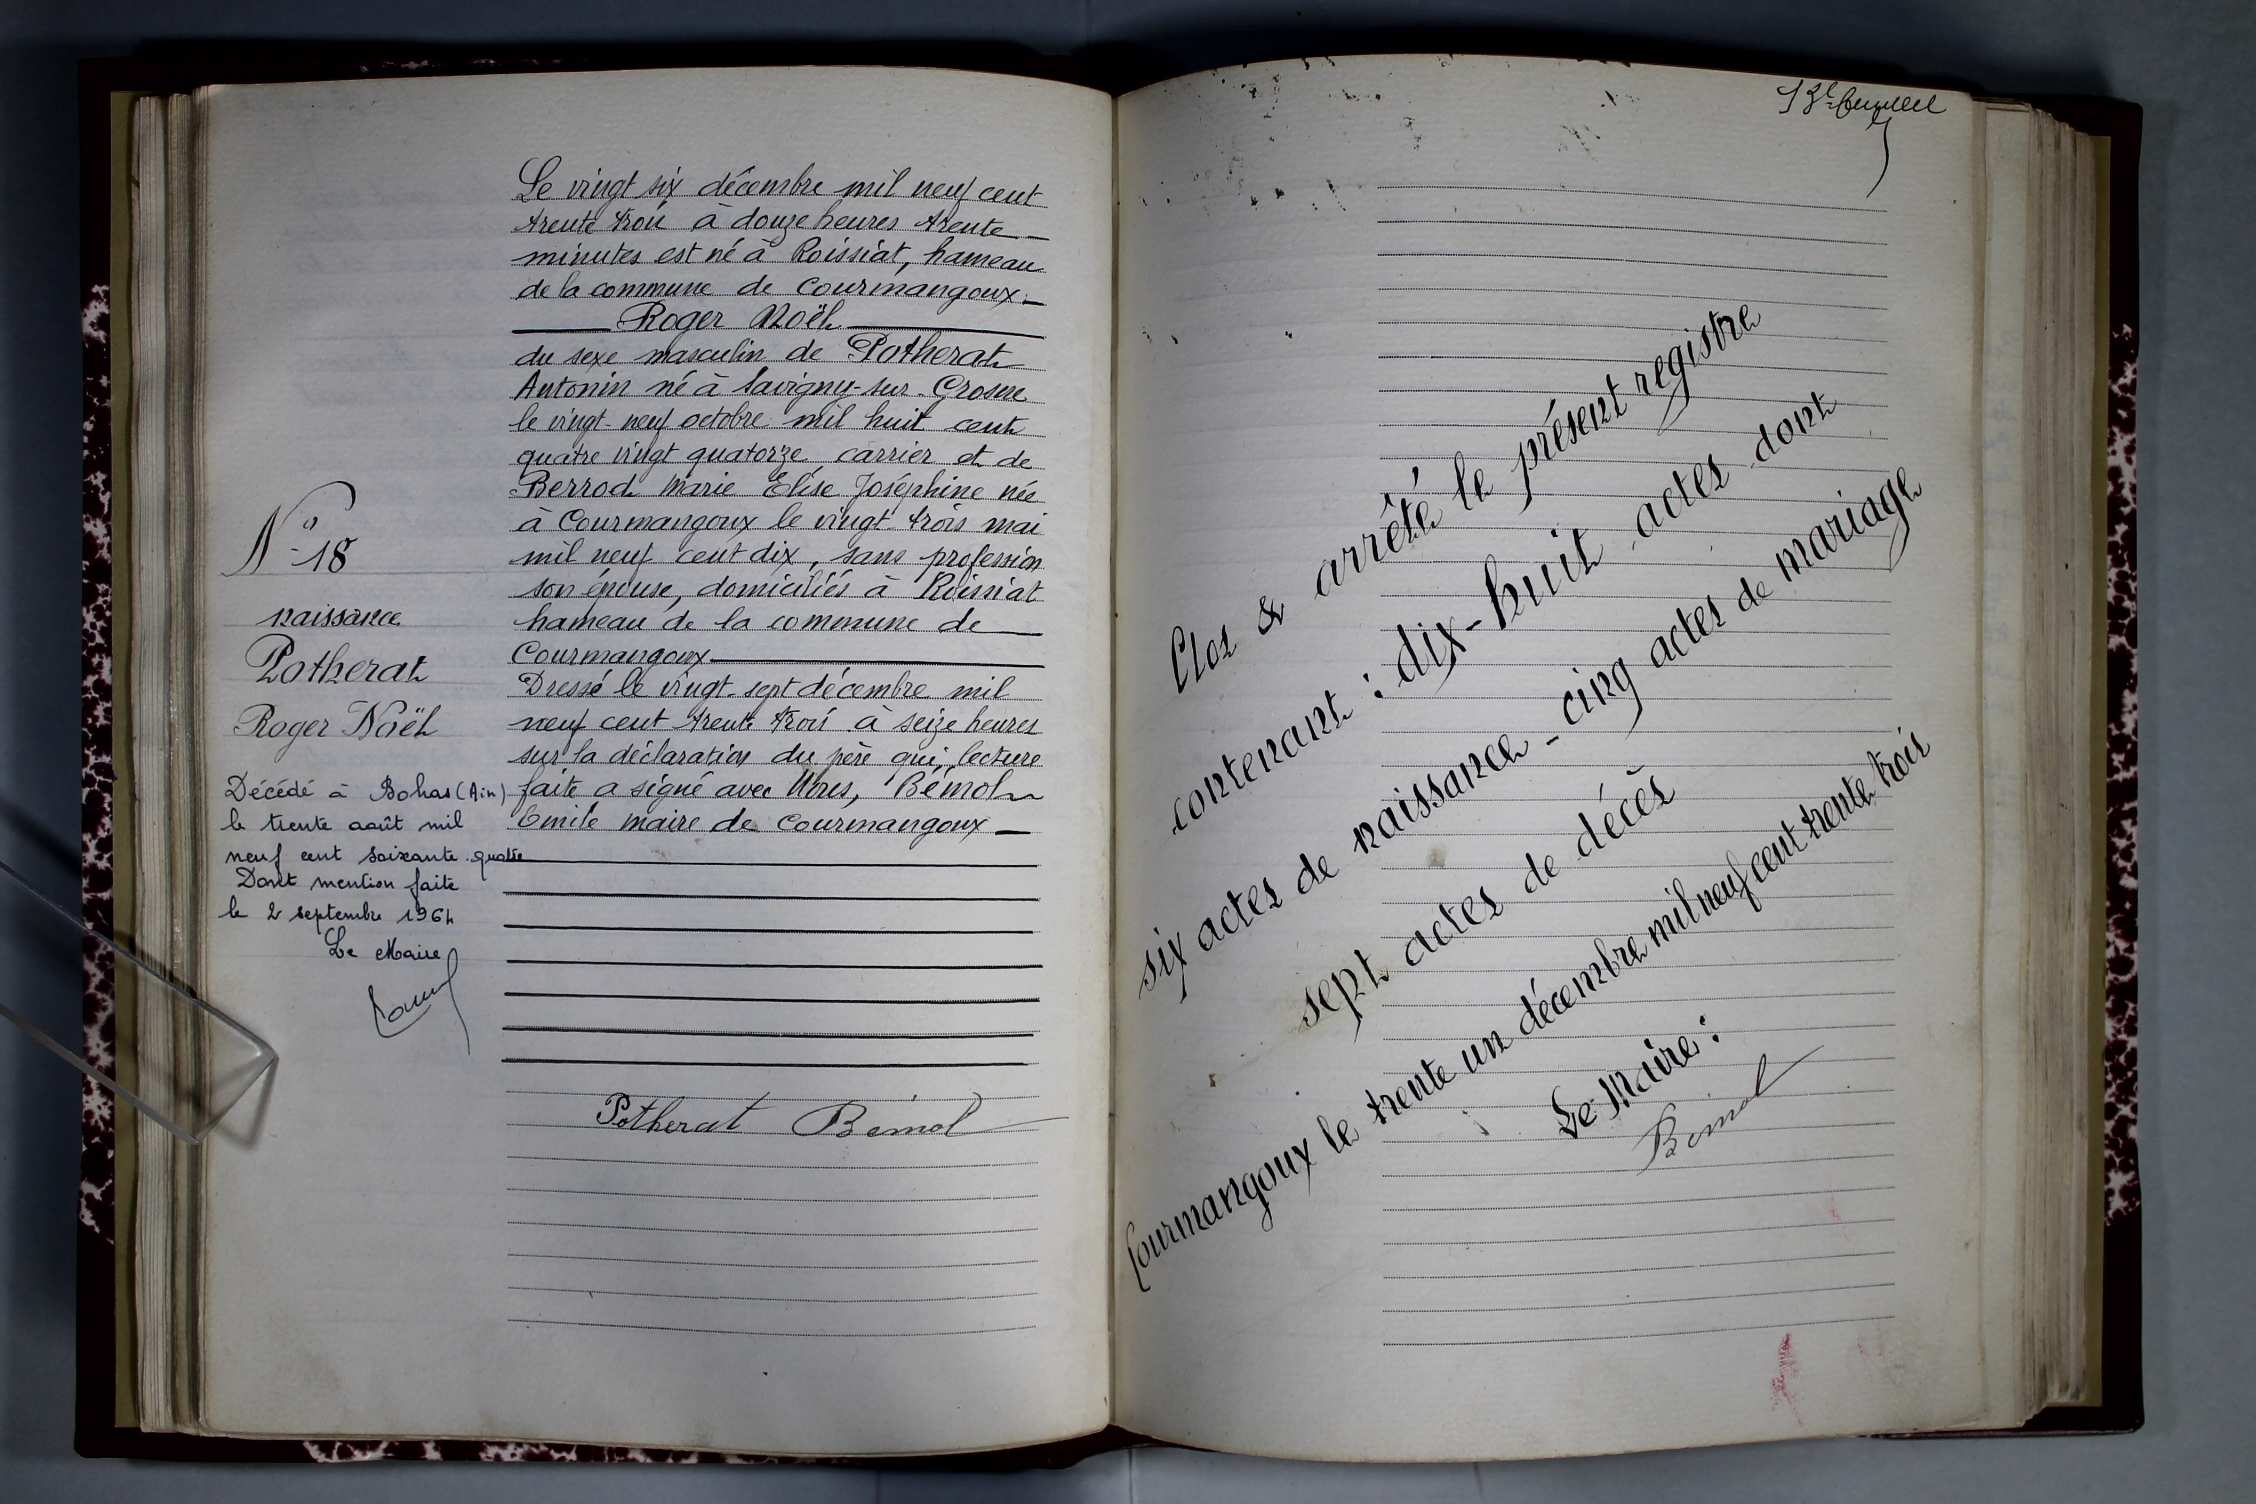 N° 18
naissance
Potherat
Roger Noël
Décédé à Bohas (Ain)
le trente août mil
neuf cent soixante quatre
Dont mention faite
le 2 septembre 1964
Le Maire
Le vingt six décembre mil neuf cent
trente trois à douze heures trente
minutes est né à Roissiat, hameau
de la commune de Courmangoux.
Roger Noël
du sexe masculin de Potherat
Antonin né à Savigny-sur-Grosne
le vingt-neuf octobre mil huit cent
quatre vingt quatorze carrier et de
Berrod Marie Elise Joséphine née
à Courmangoux le vingt trois mai
mil neuf cent dix, sans profession
son épouse, domiciliés à Roissiat
hameau de la commune de
Courmangoux
Dressé le vingt-sept décembre mil
neuf cent trente trois à seize heures
sur la déclaration du père qui, lecture
faite a signé avec Nous, Bémol
Emile maire de Courmangoux
Potherat Bémol
Clos & arrêté le présent registre
contenant : dix-huit actes dont
six actes de naissance - cinq actes de mariage
sept actes de décès
Courmangoux le trente un décembre mil neuf cent trente trois
Le Maire :
Bémol